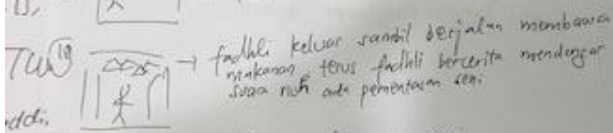 fadhli keluar sambil berjalan membawa
makanan, terus fadhli bercerita mendengar
suara ada pementasan seni